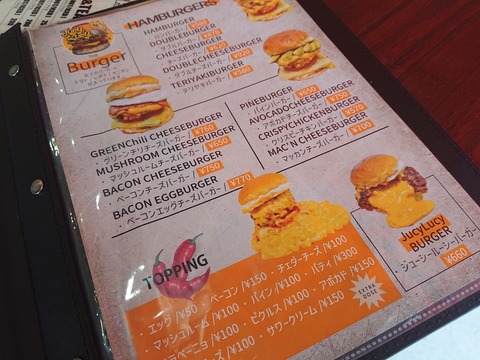 HAMBURGERS
HAMBURGER
・ハンバーガー/
DOUBLEBURGER
・ダブルバーガー/
CHEESEBURGER
・チーズバーガー/
DOUBLECHEESEBURGER
・ダブルチーズバーガー/
TERIYAKIBURGER
・テリヤキバーガー/¥580
Burger
GREENChili CHEESEBURGER
・グリーンチリチーズバーガー/¥760
MUSHROOM CHEESEBURGER
・マッシュルームチーズバーガー/¥650
BACON CHEESEBURGER
・ベーコンチーズバーガー/¥750
BACON EGGBURGER
・ベーコンエッグチーズバーガー/¥770
PINEBURGER
・パインバーガー/¥650
AVOCADOCHEESEBURGER
・アボカドチーズバーガー/¥750
CRISPYCHICKENBURGER
・クリスピーチキンバーガー/¥570
MAC'N CHEESEBURGER
・マッカンチーズバーガー/¥700
JucyLucy
BURGER
・ジューシールーシーバーガー
¥660
TOPPING
・エッグ/¥50 ・ベーコン/¥150 ・チェダーチーズ/¥100
・マッシュルーム/¥100 ・パイン/¥100 ・パティ/¥300
・ピクルス/¥100 ・アボカド/¥150
・サワークリーム/¥150
EXTRA
DOSE